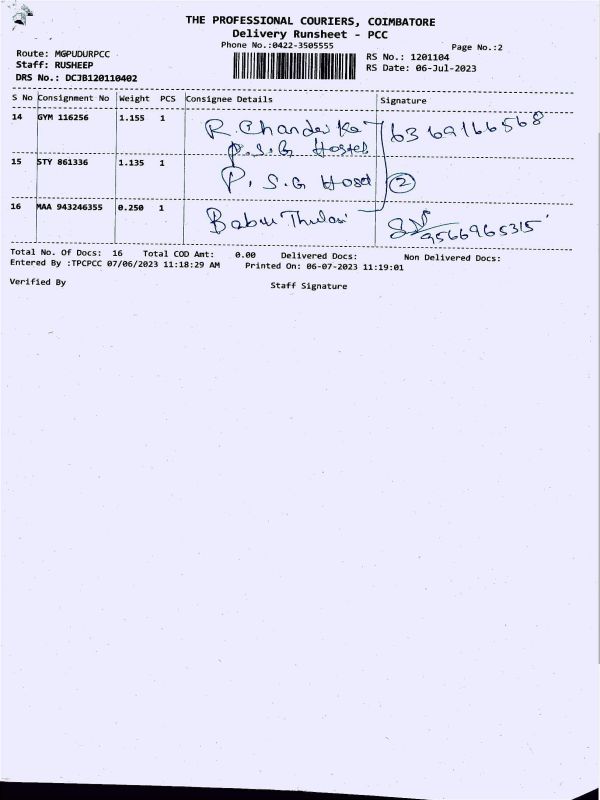 THE PROFESSIONAL COURIERS, COIMBATORE
Delivery Runsheet - PCC
Phone No.:0422-3505555 Page No.:2
Route: MGPUDURPCC RS No.: 1201104
Staff: RUSHEEP RS Date: 06-Jul-2023
DRS No.: DCJB120110402
S No Consignment No Weight PCS Consignee Details Signature
14 GYM 116256 1.155 1 R. Chander Ka 6369166568
P.S.G Hostel
15 STY 861336 1.135 1 P. S. G Hosel 2
16 MAA 943246355 0.250 1 Babu Thulasi 9566965315
Total No. Of Docs: 16 Total COD Amt: 0.00 Delivered Docs: Non Delivered Docs:
Entered By :TPCPCC 07/06/2023 11:18:29 AM Printed On: 06-07-2023 11:19:01
Verified By Staff Signature